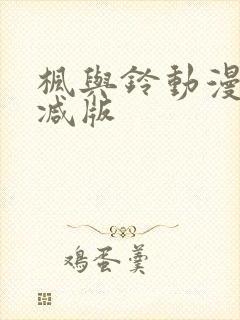 楓與鈴動漫
减版
鸡蛋羹